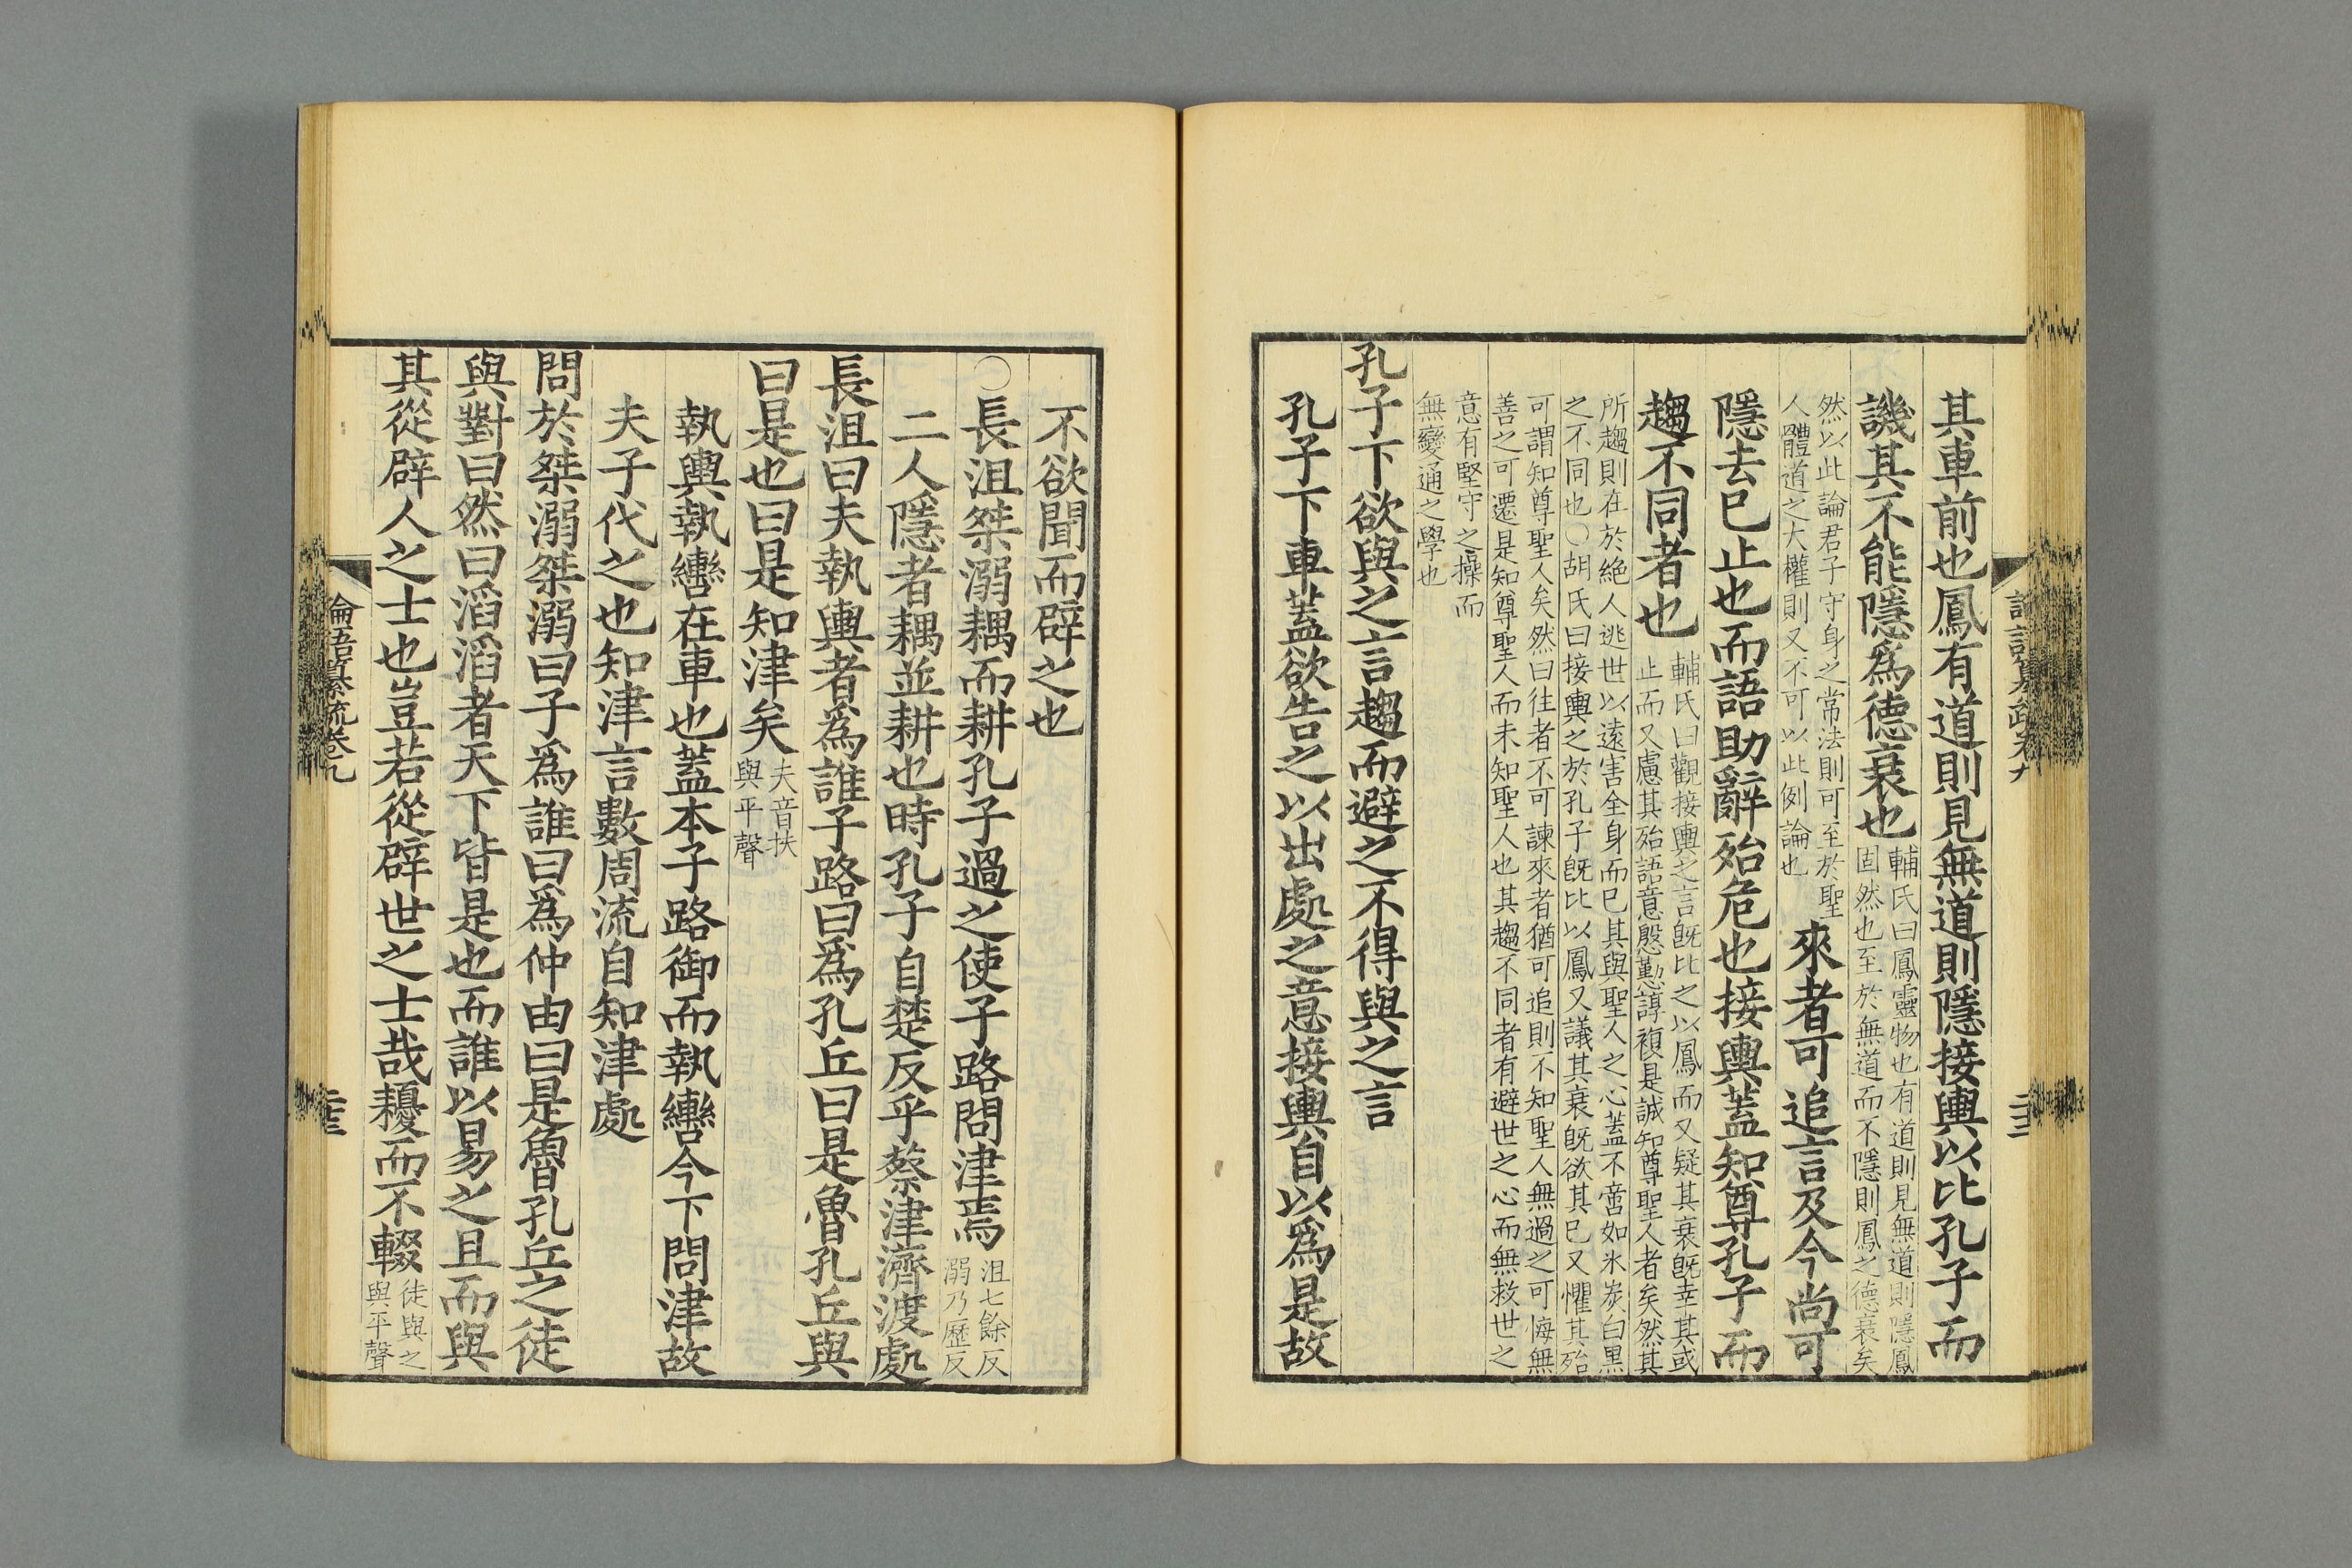 其車前也鳳有道則見無道則隱接輿以比孔子而
譏其不能隱爲德衰也
輔氏曰鳳靈物也有道則見無道則隱鳳
固然也至於無道而不隱則鳳之德衰矣
然以此論君子守身之常法則可至於聖
人體道之大權則又不可以此例論也
來者可追言及今尚可
隱去已止也而語助辭殆危也接輿蓋知尊孔子而
趨不同者也
輔氏曰觀接輿之言旣比之以鳳而又疑其衰旣幸其或
止而又慮其殆語意慇懃諄複是誠知尊聖人者矣然其
所趨則在於絶人逃世以遠害全身而已其與聖人之心蓋不啻如氷炭白黒
之不同也○胡氏曰接輿之於孔子旣比以鳳又議其衰旣欲其已又懼其殆
可謂知尊聖人矣然曰往者不可諫來者猶可追則不知聖人無過之可悔無
善之可遷是知尊聖人而未知聖人也其趨不同者有避世之心而無救世之
意有堅守之操而
無變通之學也
孔子下欲與之言趨而避之不得與之言
孔子下車蓋欲告之以出處之意接輿自以爲是故
論語纂疏卷九
二十二
不欲聞而辟之也
○長沮桀溺耦而耕孔子過之使子路問津焉
沮七餘反
溺乃歷反
二人隱者耦並耕也時孔子自楚反乎蔡津濟渡處
長沮曰夫執輿者爲誰子路曰爲孔丘曰是魯孔丘與
曰是也曰是知津矣
夫音扶
與平聲
執輿執轡在車也蓋本子路御而執轡今下問津故
夫子代之也知津言數周流自知津處
問於桀溺桀溺曰子爲誰曰爲仲由曰是魯孔丘之徒
與對曰然曰滔滔者天下皆是也而誰以易之且而與
其從辟人之士也豈若從辟世之士哉耰而不輟
徒與之
與平聲
論語纂疏卷九
二十三